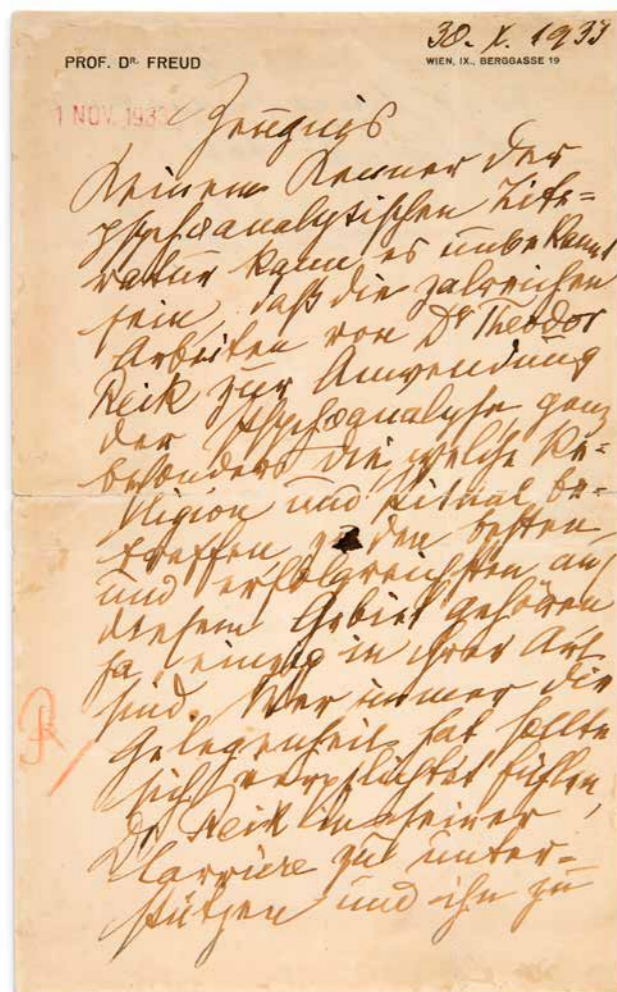 38. X. 1933
PROF. DR. FREUD
WIEN, IX., BERGGASSE 19
1 NOV. 193
Zeugnis
Keinem Kenner der
psychoanalytischen Lite=
ratur kann es unbekannt
sein, daß die zalreichen
Arbeiten von Dr Theodor
Reik zur Anwendung
der Psychoanalyse, ganz
besonders die, welche Re=
ligion und Ritual be=
treffen, zu den besten
und erfolgreichsten auf
diesem Gebiet gehören
ja, einzig in ihrer Art
sind. Wer immer die
Gelegenheit hat sollte
sich verpflichtet fühlen,
Dr Reik in seiner
Karriere zu unter=
stützen und ihn zu